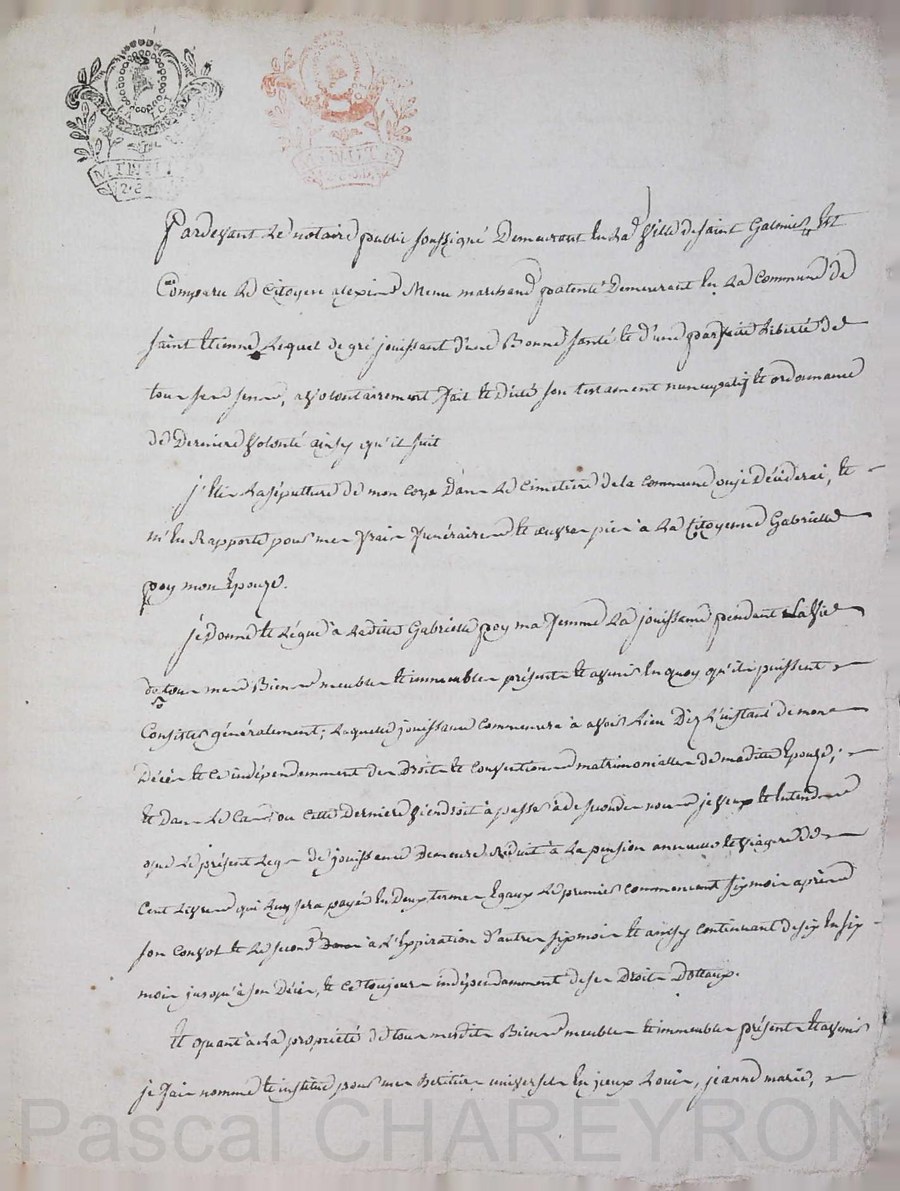 LA LOI
MINUTE
MINUTE
Pardevant Le notaire public soussigné Demeurant En La ville de saint Galmier, Est
Comparu Le Citoyen alexis Menu marchand patenté Demeurant En La Commune de
saint Etienne, Lequel de gré jouissant d'une Bonne santé Et d'une parfaite Liberté de
tous ses sens, a volontairement fait Et Dicté son testament nuncupatif Et ordonnance
de Derniere volonté ainsy qu'il suit
j'Elis La sépulture de mon corps Dans Le Cimetiere de la commune ou je Déciderai, Et
m'En Rapporte pour mes frais funéraires Et œuvres pies à La Citoyenne Gabrielle
poy mon Epouze.
je donne Et Légue à Laditte Gabrielle poy ma femme La jouissance pendant sa vie
de tous mes Biens meubles Et immeubles présents Et avenir En quoy qu'ils puissent
Consister généralement; Laquelle jouissance Commencera à avoir Lieu Dez L'instant de mon
Décès Et ce indépendemment des Droits Et Conventions matrimonialles de maditte Epouze;
Et Dans Le Cas ou Cette Derniere viendroit à passer à de secondes noces je veux Et Entends
que Le présent Legs de jouissance Demeure Réduit à La pension annuelle Et viagere de
Cent Livres qui Luy sera payée En Deux termes Egaux Le premier commencant six mois après
son convol Et Le second à L'Expiration d'autres six mois Et ainsy continuant de six En six
mois jusqu'à son Décès, Et ce toujours indépendamment de ses Droits Dottaux.
Et quant à La propriété de tous mesdits Biens meubles Et immeubles présents Et avenir
je fais nomme Et institue pour mes heritiers universels En jceux Louis, jeanne marie,
Pascal CHAREYRON